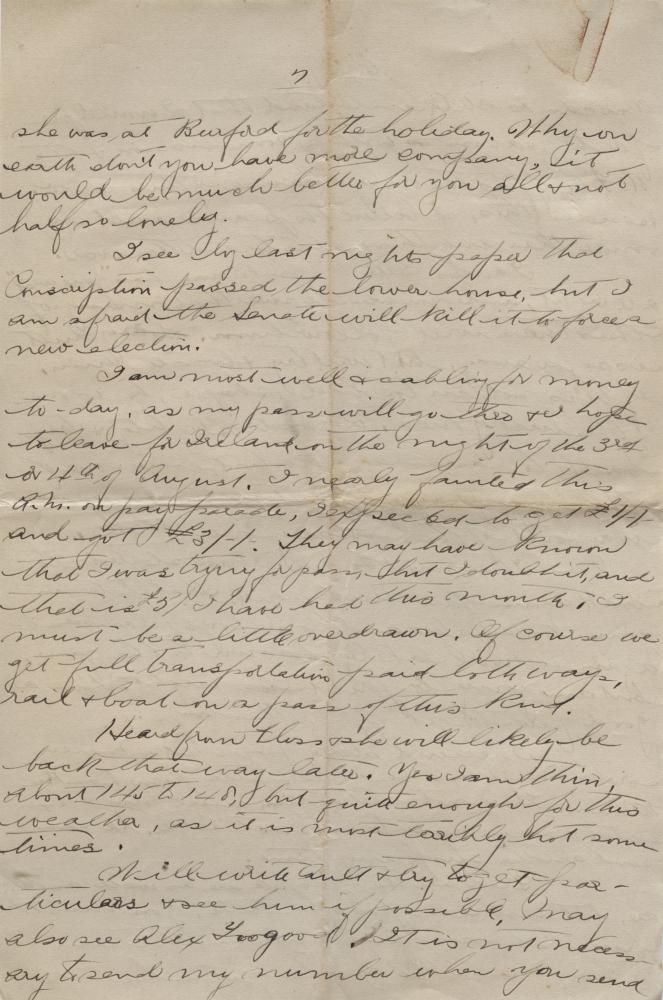 7
she was at Burford for the holiday. Why on
earth don't you have more company, it
would be much better for you all & not
half so lonely.
I see by last nights paper that
Conscription passed the lower house, but I
am afraid the Senate will kill it to force a
new election.
I am most well & cabling for money
to-day, as my pass will go thro & I hope
to leave for Ireland on the night of the 3rd
or 4th of August. I nearly fainted this
A.M. on pay parade, I expected to get £1/-/-
and got £3/-/-. They may have known
that I was trying for pass, but I doubt it, and
that is £5/ I have had this month, I
must be a little overdrawn. Of course we
get full transportation paid both ways,
rail & boat on a pass of this kind.
Heard from Floss & she will likely be
back that way later. Yes I am thin,
about 145 to 148, but quite enough for this
weather, as it is most terribly hot some
times.
Will write Ault & try to get par-
ticulars & see him if possible, may
also see Alex. It is not necess-
ary to send my number when you send